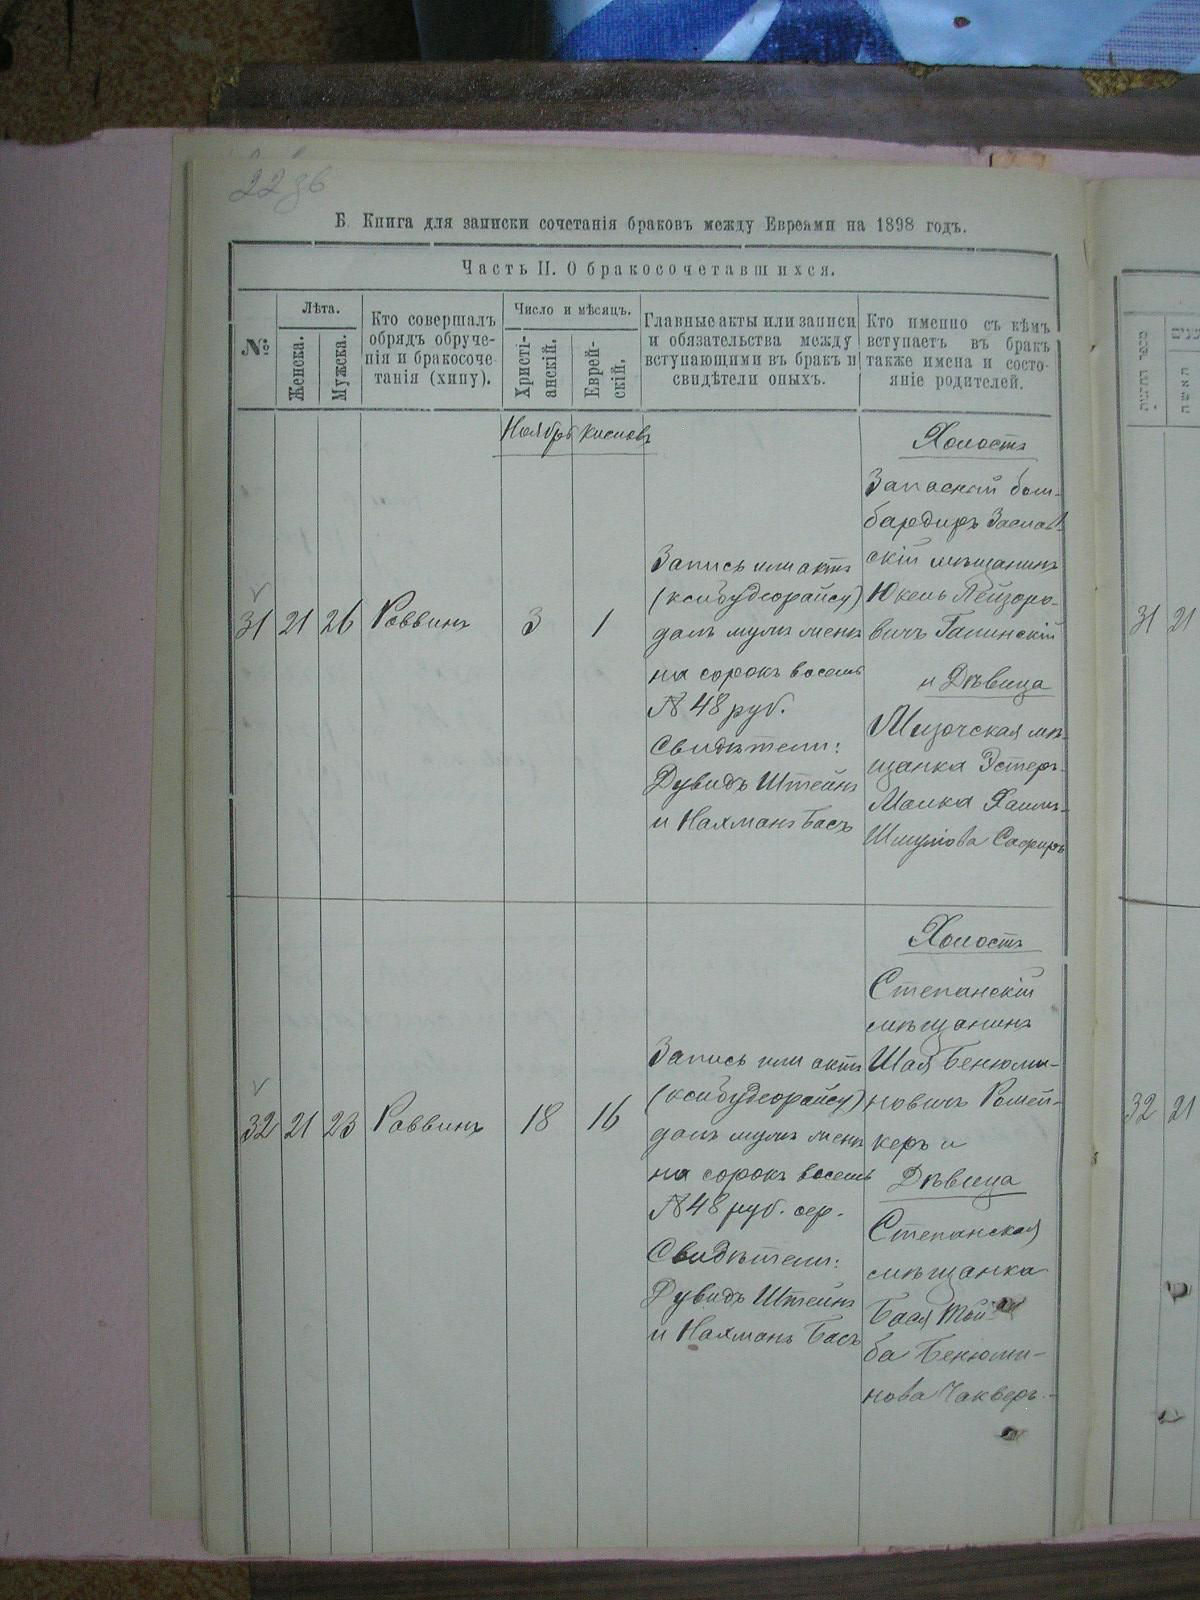 22 зв
Б. Книга для записки сочетанія браковъ между Евреами на 1898 годъ.
Часть II. О бракосочетавшихся.
№
Лѣта.
Женска.
Мужска.
Кто совершалъ
обрядъ обруче-
нія и бракосоче-
танія (хипу).
Число и мѣсяцъ.
Христі-
анскій.
Еврей-
скій.
Главные акты или записи
и обязательства между
вступающими въ бракъ и
свидѣтели оныхъ.
Кто именно съ кѣмъ
вступаетъ въ бракъ
также имена и состо-
яніе родителей.
Ноябрь Кислевъ
31 21 26 Раввинъ 3 1
Запись или актъ
(ксибудсорайсу)
далъ мужъ женѣ
на сорокъ восемь
48 руб.
Свидѣтели:
Дувидъ Штейнъ
и Нахманъ Басъ
Холостъ
Запасный бом-
бардиръ Заслав-
скій мѣщанинъ
Юкель Лейзоро-
вичъ Галинскій
и Дѣвица
Мизочская мѣ-
щанка Эстеръ-
Малка Хаимъ-
Шмулова Сафиръ
32 21 23 Раввинъ 18 16
Запись или актъ
(ксибудсорайсу)
далъ мужъ женѣ
на сорокъ восемь
48 руб. сер.
Свидѣтели:
Дувидъ Штейнъ
и Нахманъ Басъ
Холостъ
Степанскій
мѣщанинъ
Шая Бенюми-
новичъ Ромей-
керъ и
Дѣвица
Степанская
мѣщанка
Бася Той-
ба Бенюми-
нова Чакверъ.
31 21
32 21